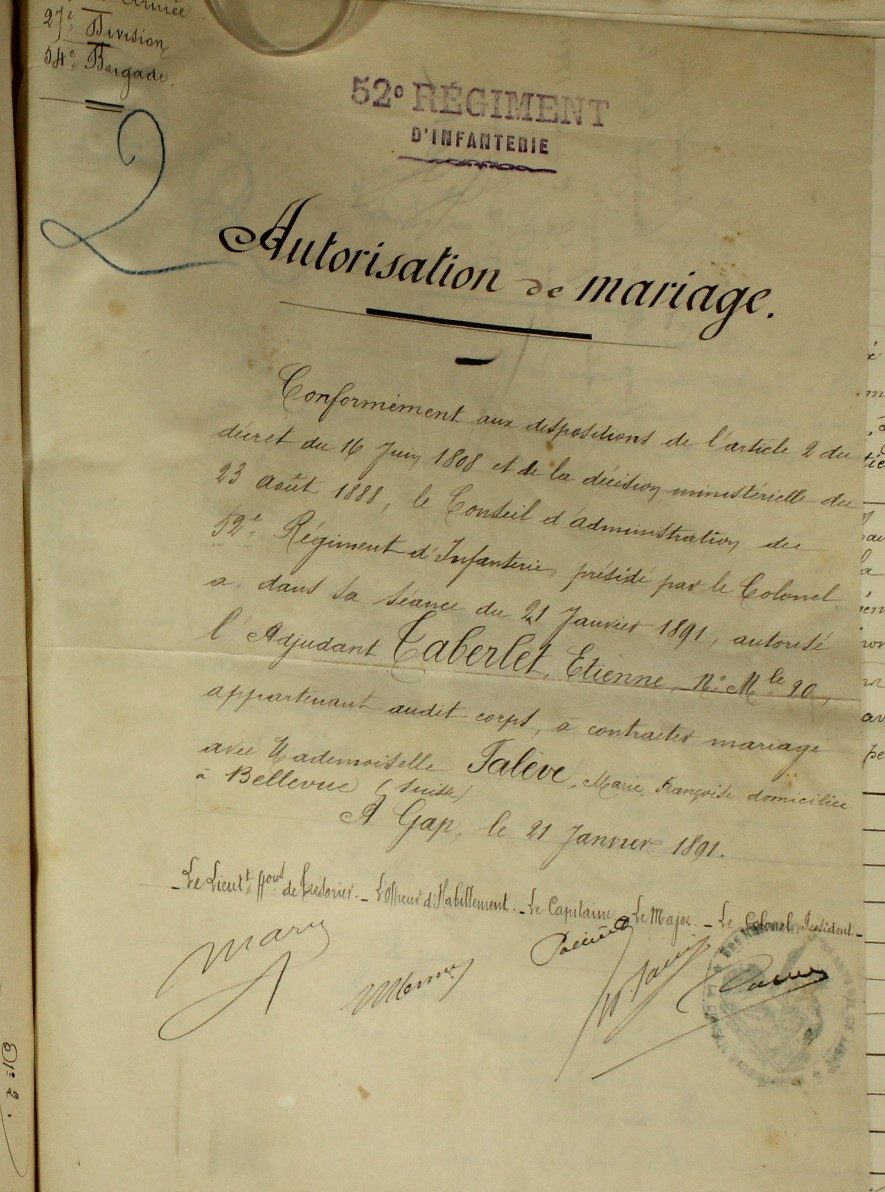 Armée
27e Division
54e Brigade.
52e RÉGIMENT
D'INFANTERIE
2
Autorisation de mariage.
Conformément aux dispositions de l'article 2 du
décret du 16 Juin 1808 et de la décision ministérielle du
23 août 1888, le Conseil d'administration du
52e Régiment d'Infanterie, présidé par le Colonel
a, dans sa séance du 21 Janvier 1891, autorisé
l'Adjudant Taberlet, Etienne, No Mle 90,
appartenant audit corps, à contracter mariage
avec Mademoiselle Falève, Marie, Françoise domiciliée
à Bellevue (Suisse)
A Gap, le 21 Janvier 1891.
Le Lieutt ffons de Trésorier. _ L'officier d'Habillement. _ Le Capitaine _ Le Major. _ Le Colonel Président _
Mary
No 2.